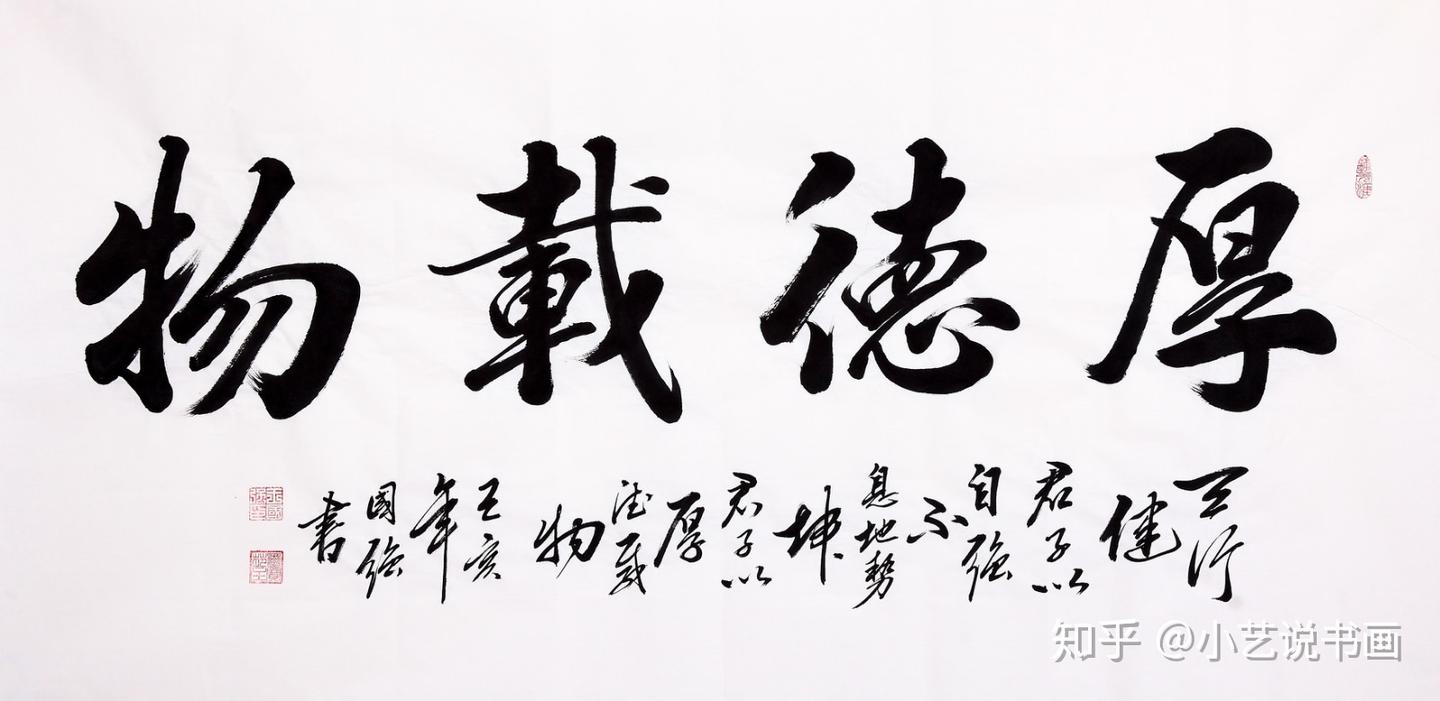 厚德載物
天行
健
君子以
自強
不
息地勢
坤
君子以
厚
德載
物
己亥
年
國強
書
知乎 @小艺说书画